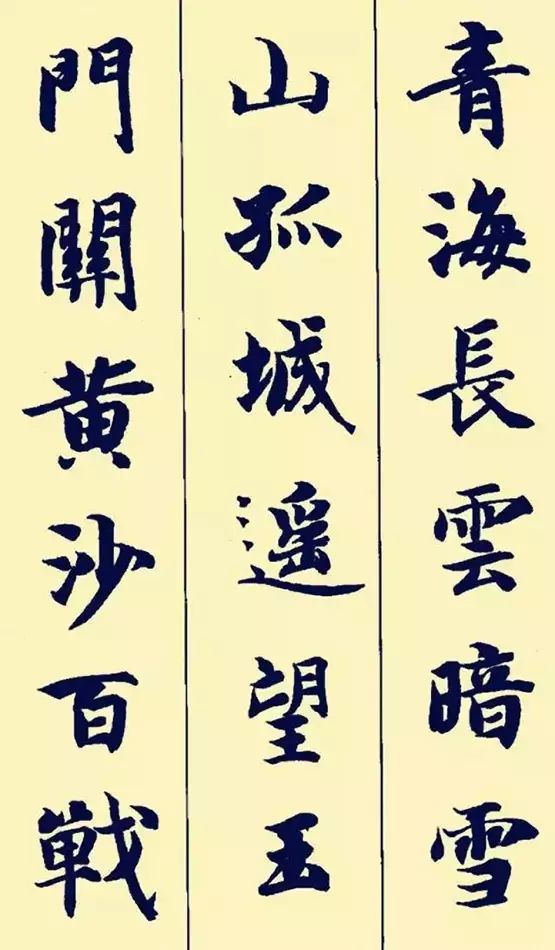 青海長雲暗雪
山孤城遥望玉
門關黄沙百戰